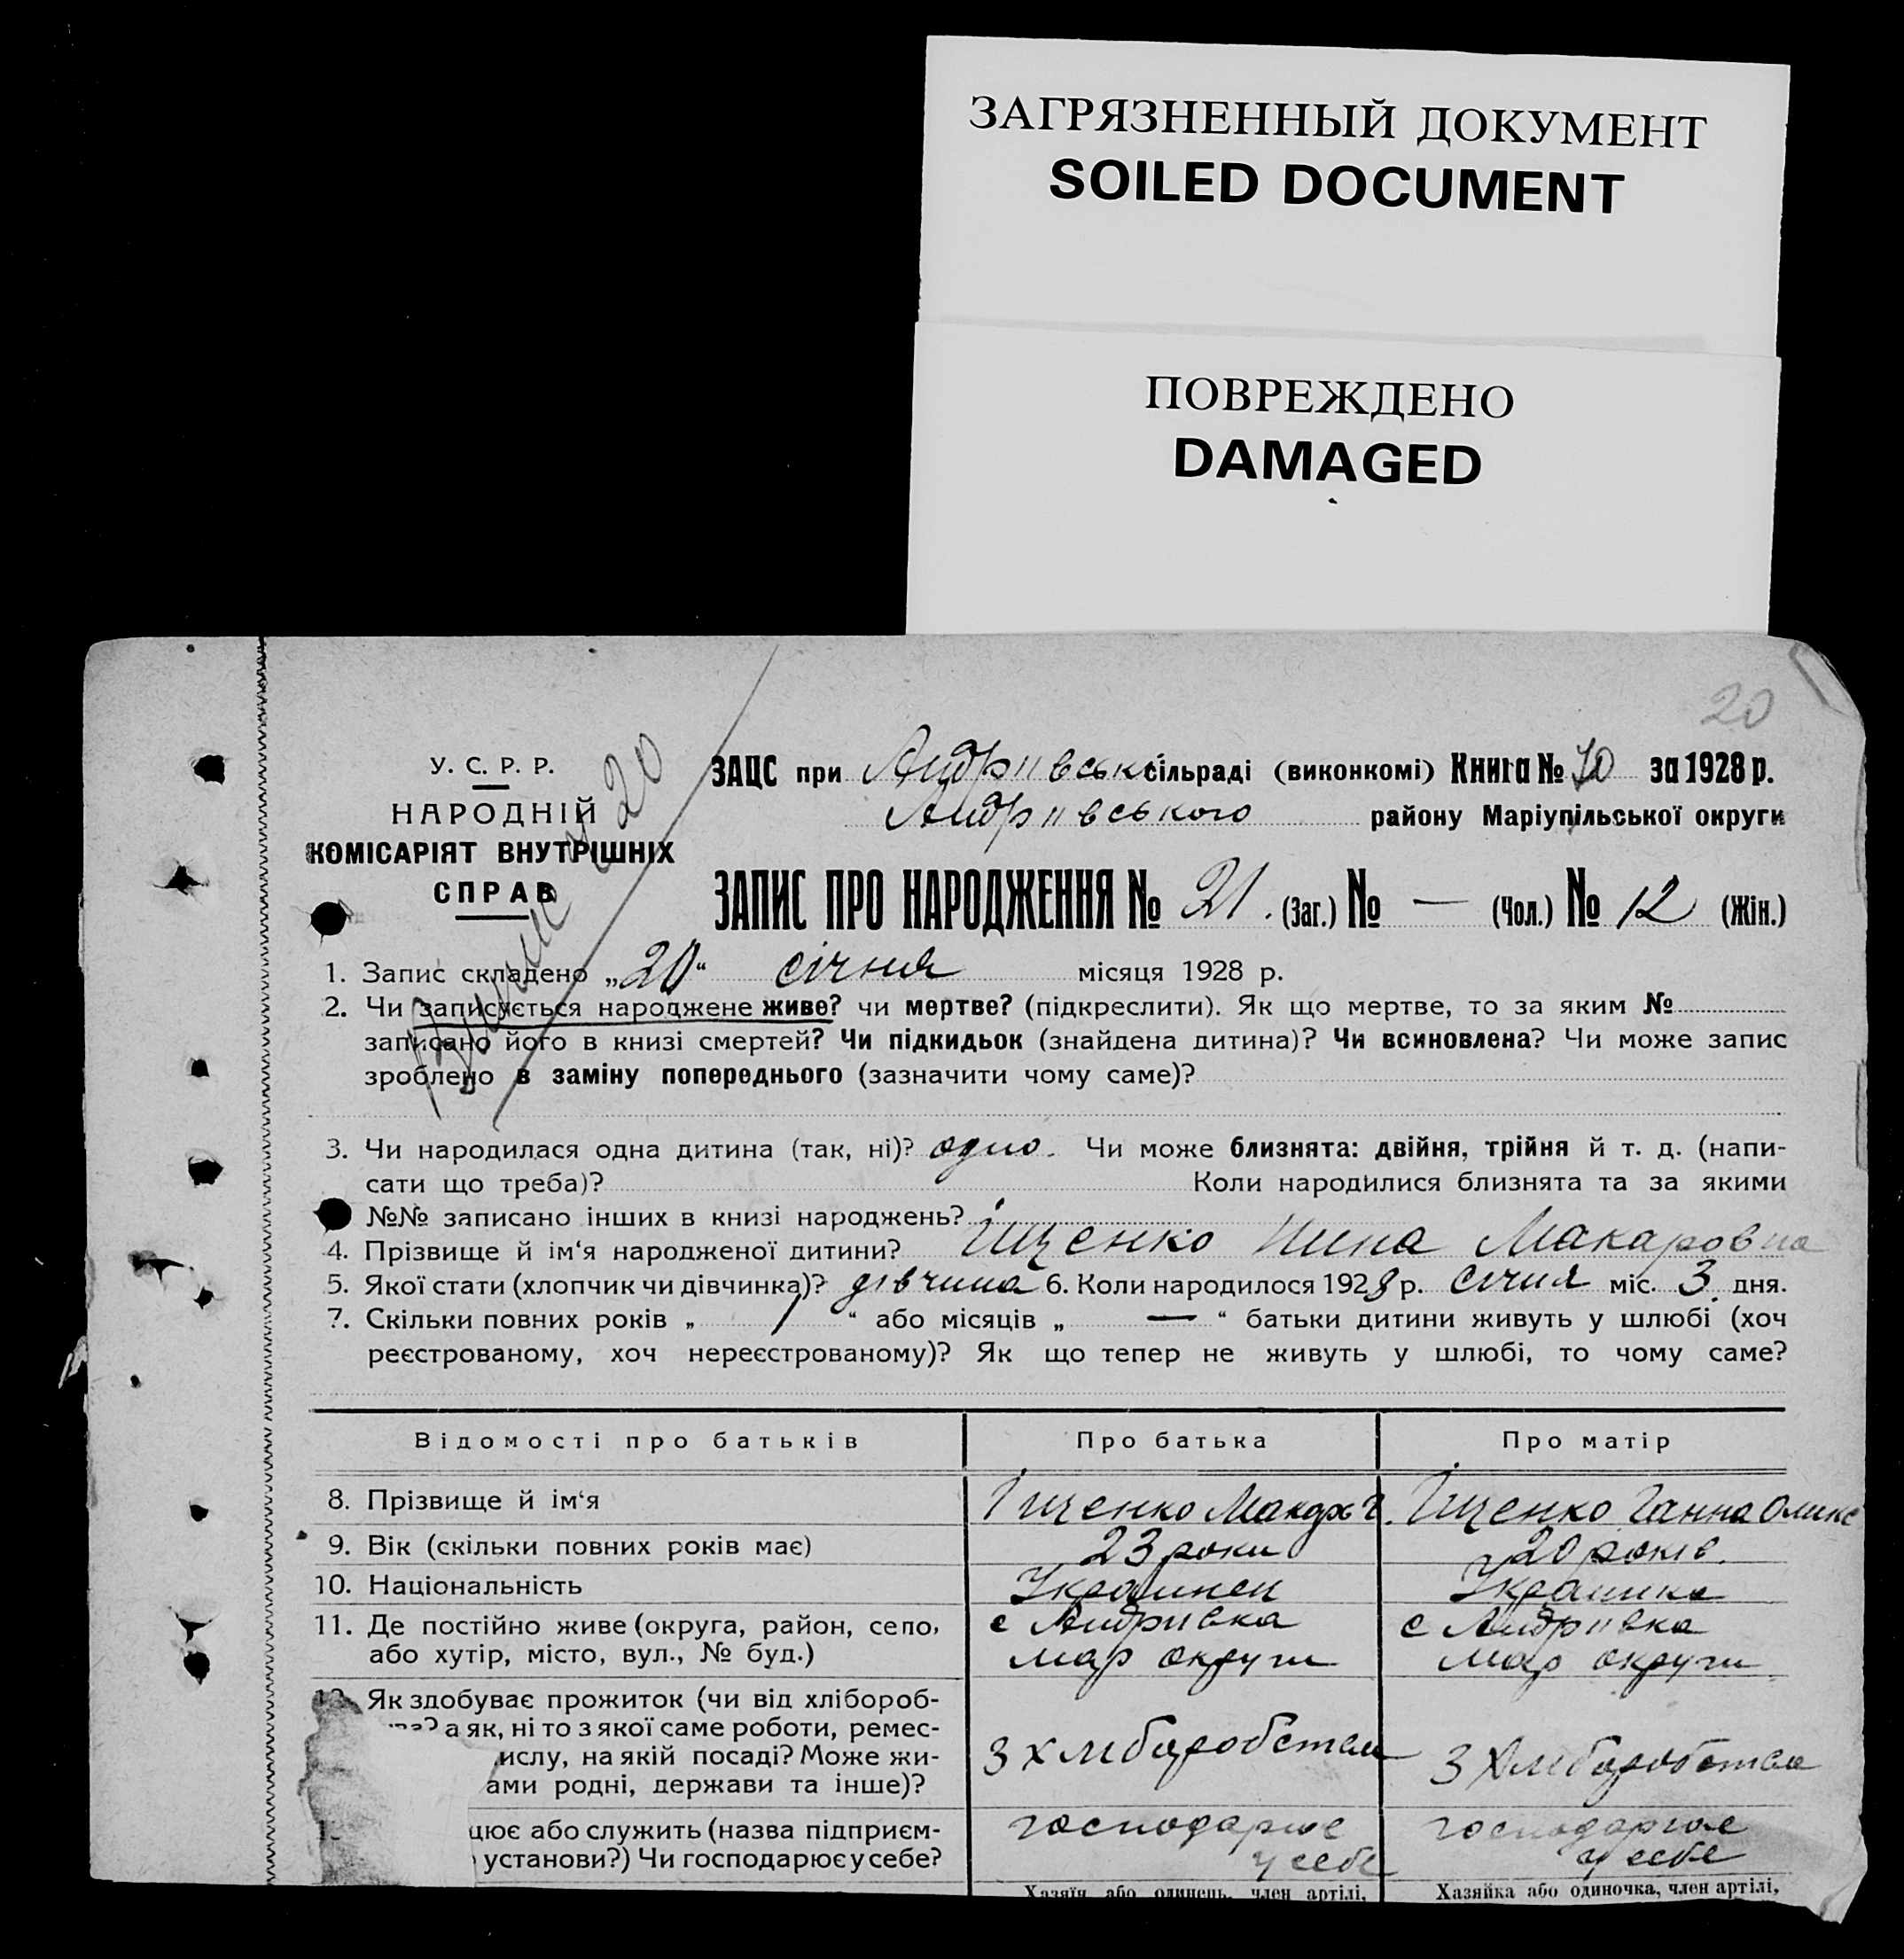 ЗАГРЯЗНЕННЫЙ ДОКУМЕНТ
SOILED DOCUMENT
ПОВРЕЖДЕНО
DAMAGED
20
У. С. Р. Р.
НАРОДНІЙ
КОМІСАРІЯТ ВНУТРІШНІХ
СПРАВ
20
ЗАЦС при Андріївськ сільраді (виконкомі) Книга № 10 за 1928 р.
Андріівського району Маріупільської округи
ЗАПИС ПРО НАРОДЖЕННЯ № 21. (Заг.) № — (Чол.) № 12 (Жін.)
1. Запис складено „20“ січня місяця 1928 р.
2. Чи записується народжене живе? чи мертве? (підкреслити). Як що мертве, то за яким №
записано його в книзі смертей? Чи підкидьок (знайдена дитина)? Чи всиновлена? Чи може запис
зроблено в заміну попереднього (зазначити чому саме)?
3. Чи народилася одна дитина (так, ні)? одно. Чи може близнята: двійня, трійня й т. д. (напи-
сати що треба)? Коли народилися близнята та за якими
№№ записано інших в книзі народжень?
4. Прізвище й ім‘я народженої дитини? Іщенко Нина Макаровна
5. Якої стати (хлопчик чи дівчинка)? дівчина 6. Коли народилося 1928 р. Січня міс. 3 дня.
7. Скільки повних років „ 1 “ або місяців „ — “ батьки дитини живуть у шлюбі (хоч
реєстрованому, хоч нереєстрованому)? Як що тепер не живуть у шлюбі, то чому саме?
Відомості про батьків Про батька Про матір
8. Прізвище й ім‘я Іщенко Макар Іщенко Ганна Олекс
9. Вік (скільки повних років має) 23 роки 20 років.
10. Національність Украинец Украинка
11. Де постійно живе (округа, район, село, с Андріівка с Андріівка
або хутір, місто, вул., № буд.) Мар округи Мар округи
Як здобуває прожиток (чи від хлібороб-
а як, ні то з якої саме роботи, ремес-
ислу, на якій посаді? Може жи- З хліборобства З хліборобства
ами родні, держави та інше)?
цює або служить (назва підприєм- господарює господарює
установи?) Чи господарює у себе? у себе у себе
Хазяїн або одинець, член артілі, Хазяйка або одиночка, член артілі,